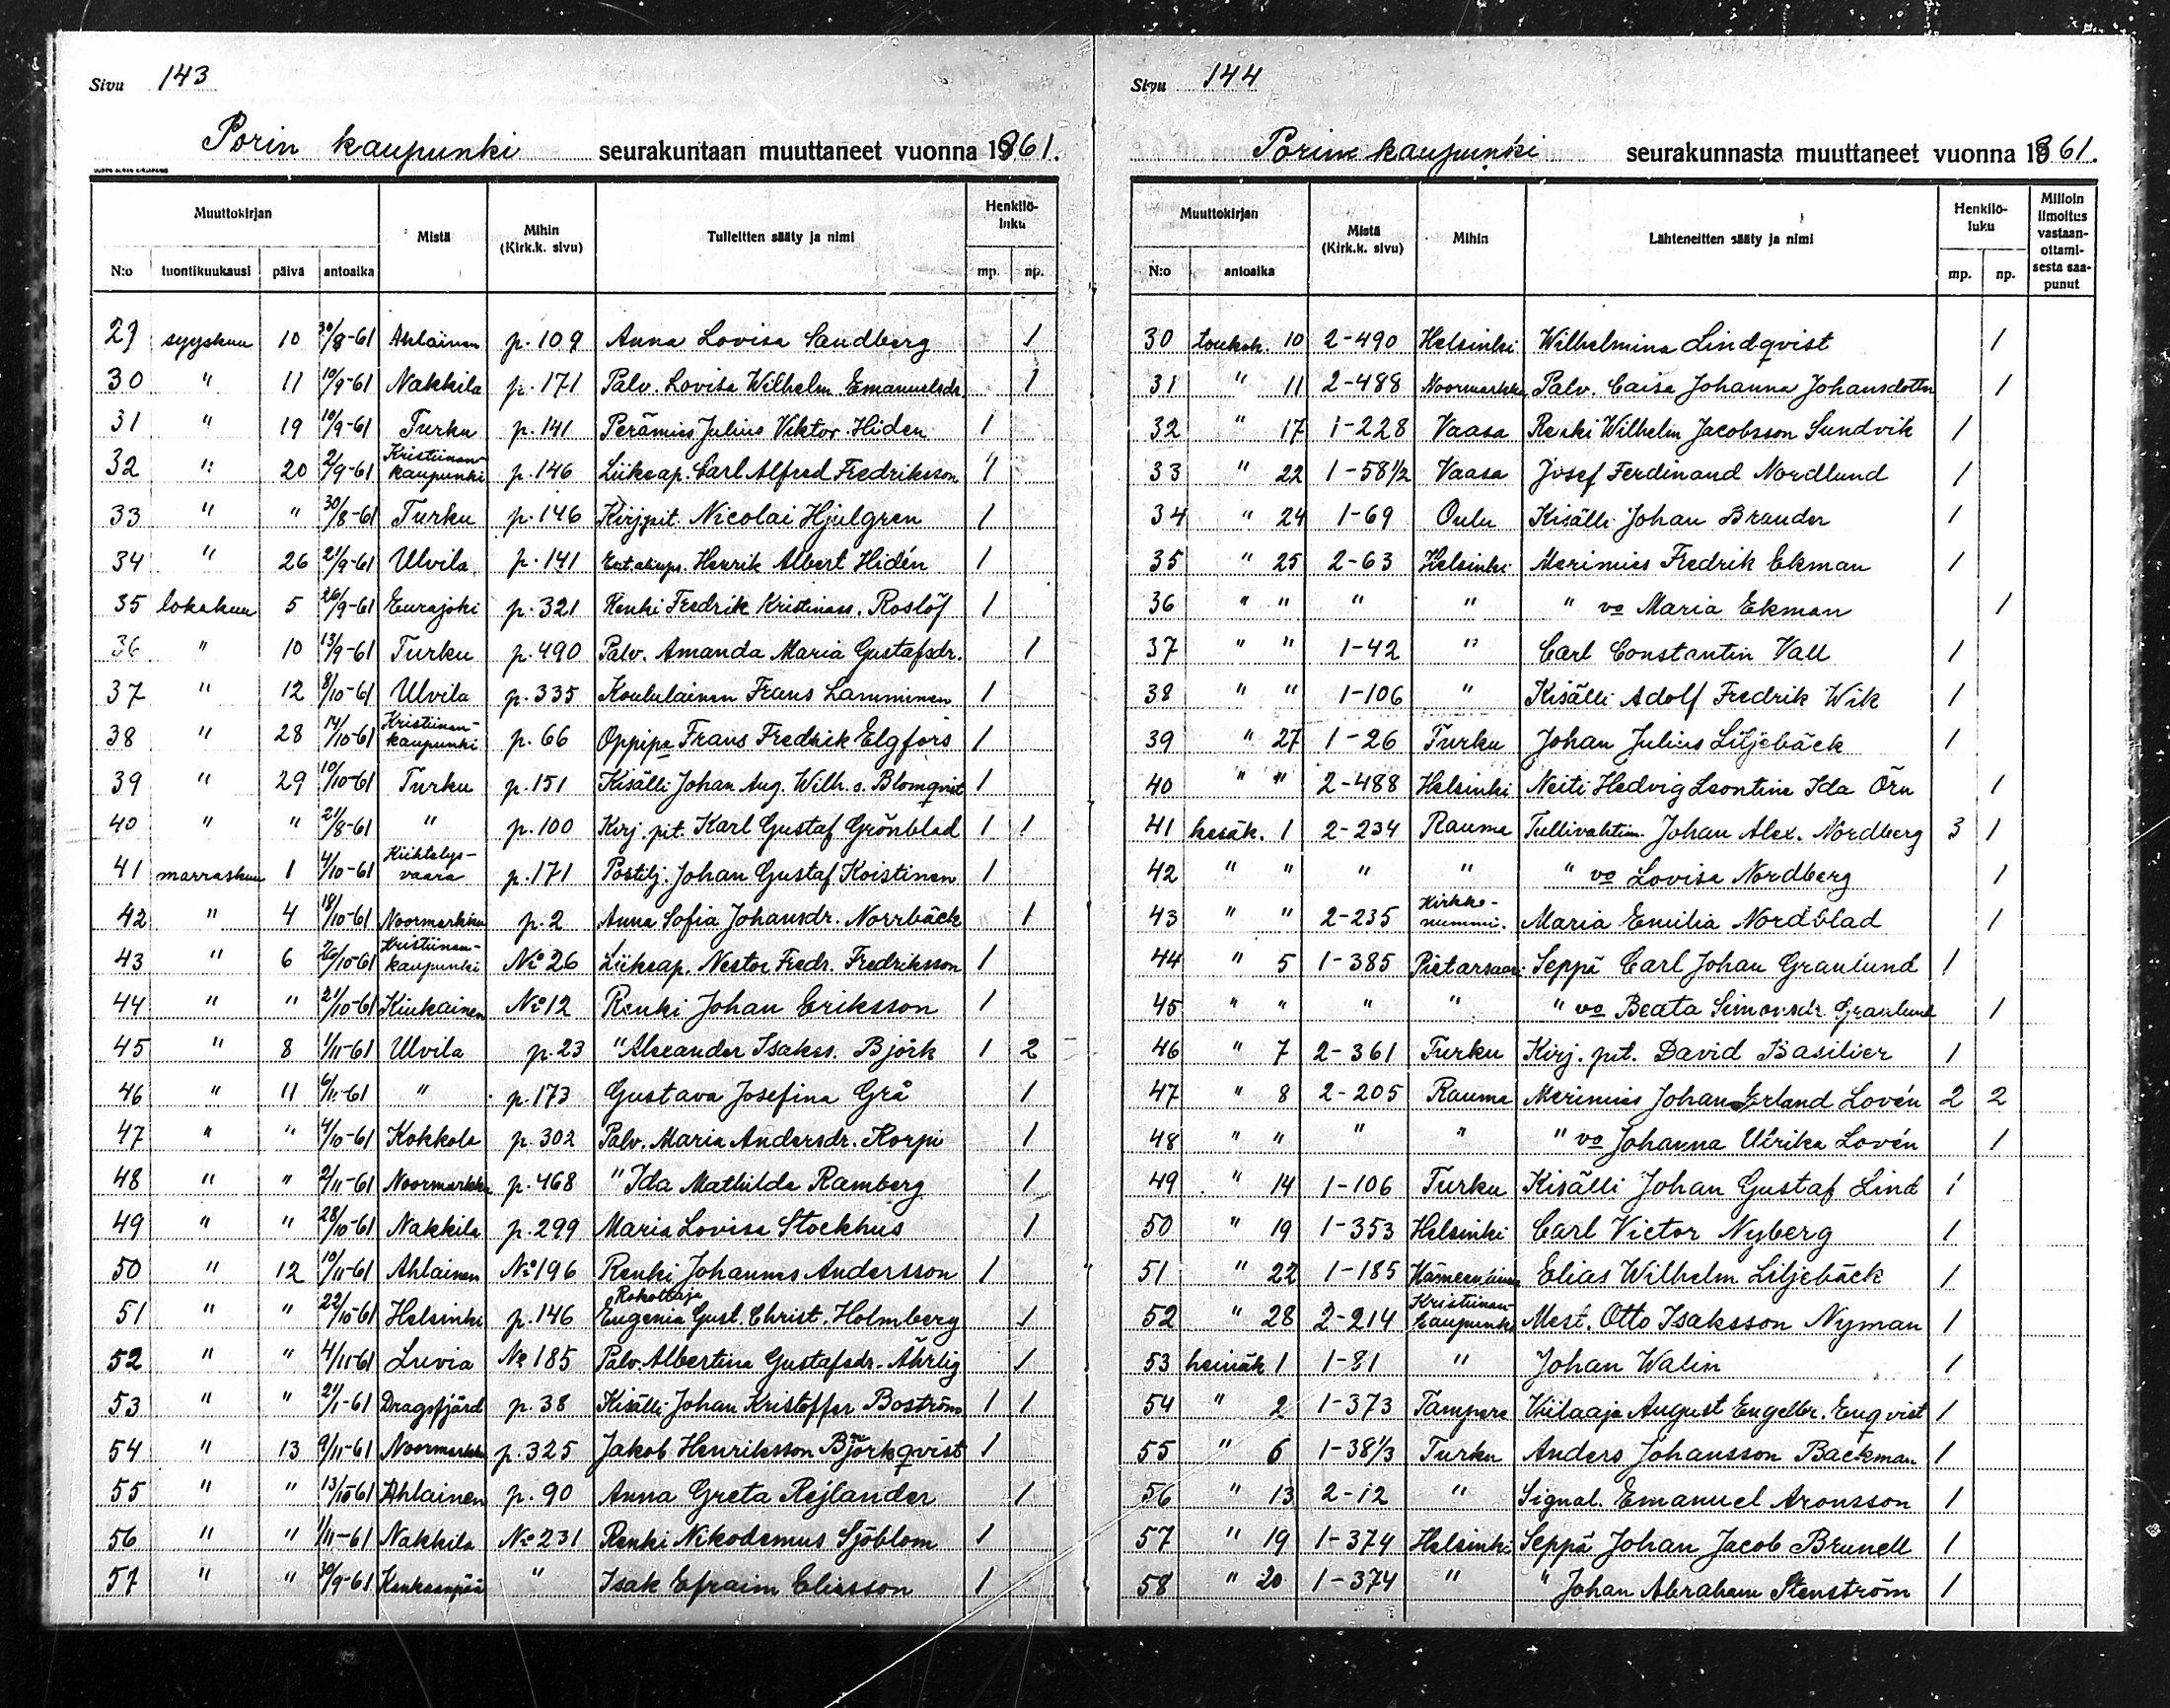 Sivu 143
Porin kaupunki seurakuntaan muuttaneet vuonna 1861.
Muuttokirjan Mistä Mihin (Kirk.k. sivu) Tulleitten sääty ja nimi Henkilö-luku
N:o tuontikuukausi päivä antoaika mp. np.
29 syyskuu 10 30/8-61 Ahlainen p. 109 Anna Lovisa Sandberg 1
30 " 11 10/9-61 Nakkila p. 171 Palv. Lovisa Wilhelm. Emanuelsdr. 1
31 " 19 10/9-61 Turku p. 141 Perämies Julius Viktor Hiden 1
32 " 20 2/9-61 Kristiinan-kaupunki p. 146 Liikeap. Carl Alfred Fredriksson 1
33 " " 30/8-61 Turku p. 146 Kirjpit. Nicolai Hjulgren 1
34 " 26 21/9-61 Ulvila p. 141 Henrik Albert Hidén 1
35 lokakuu 5 26/9-61 Eurajoki p. 321 Renki Fredrik Kristinass. Roslöf 1
36 " 10 13/9-61 Turku p. 490 Palv. Amanda Maria Gustafsdr. 1
37 " 12 8/10-61 Ulvila p. 335 Koululainen Frans Lamminen 1
38 " 28 14/10-61 Kristiinan-kaupunki p. 66 Oppipa Frans Fredrik Elgfors 1
39 " 29 10/10-61 Turku p. 151 Kisälli Johan Aug. Wilh. s. Blomqvist 1
40 " " 21/8-61 " p. 100 Kirj. pit. Karl Gustaf Grönblad 1 1
41 marraskuu 1 4/10-61 Kiihtelys-vaara p. 171 Postilj. Johan Gustaf Koistinen 1
42 " 4 18/10-61 Noormarkku p. 2 Anna Sofia Johansdr. Norrbäck 1
43 " 6 26/10-61 Kristiinan-kaupunki No 26 Liikeap. Nestor Fredr. Fredriksson 1
44 " " 21/10-61 Kiukainen No 12 Renki Johan Eriksson 1
45 " 8 1/11-61 Ulvila p. 23 " Alexander Isakss. Björk 1 2
46 " 11 6/11-61 " p. 173 Gustava Josefina Grå 1
47 " " 4/10-61 Kokkola p. 302 Palv. Maria Andersdr. Korpi 1
48 " " 2/11-61 Noormarkku p. 468 " Ida Mathilda Ramberg 1
49 " " 28/10-61 Nakkila p. 299 Maria Lovisa Stockhus 1
50 " 12 10/11-61 Ahlainen No 196 Renki Johannes Andersson 1
Rokottaja
51 " " 22/10-61 Helsinki p. 146 Eugenia Gust. Christ. Holmberg 1
52 " " 4/11-61 Luvia No 185 Palv. Albertina Gustafsdr. Ährlig 1
53 " " 21/1-61 Dragsfjärd p. 38 Kisälli Johan Kristoffer Boström 1 1
54 " 13 9/11-61 Noormarkku p. 325 Jakob Henriksson Björkqvist 1
55 " " 13/10-61 Ahlainen p. 90 Anna Greta Rejlander 1
56 " " 1/11-61 Nakkila No 231 Renki Nikodemus Sjöblom 1
57 " " 30/9-61 Kankaanpää " Isak Efraim Eliasson 1
Sivu 144
Porin kaupunki seurakunnasta muuttaneet vuonna 1861.
Muuttokirjan Mistä (Kirk.k. sivu) Mihin Lähteneitten sääty ja nimi Henkilö-luku Milloin ilmoitus vastaan-ottami-sesta saa-punut
N:o antoaika mp. np.
30 toukok. 10 2-490 Helsinki Wilhelmina Lindqvist 1
31 " 11 2-488 Noormarkku Palv. Caisa Johanna Johansdotter 1
32 " 17 1-228 Vaasa Renki Wilhelm Jacobsson Sundvik 1
33 " 22 1-58 1/2 Vaasa Josef Ferdinand Nordlund 1
34 " 24 1-69 Oulu Kisälli Johan Brander 1
35 " 25 2-63 Helsinki Merimies Fredrik Ekman 1
36 " " " " " vo Maria Ekman 1
37 " " 1-42 " Carl Constantin Vall 1
38 " " 1-106 " Kisälli Adolf Fredrik Wik 1
39 " 27 1-26 Turku Johan Julius Liljebäck 1
40 " " 2-488 Helsinki Neiti Hedvig Leontine Ida Örn 1
41 kesäk. 1 2-234 Rauma Tullivahtim. Johan Alex. Nordberg 3 1
42 " " " " " vo Lovisa Nordberg 1
43 " " 2-235 Kirkko-nummi. Maria Emilia Nordblad 1
44 " 5 1-385 Pietarsaari Seppä Carl Johan Granlund 1
45 " " " " " vo Beata Simonsdr. Granlund 1
46 " 7 2-361 Turku Kirj. pit. David Basilier 1
47 " 8 2-205 Rauma Merimies Johan Erland Lovén 2 2
48 " " " " " vo Johanna Ulrika Lovén 1
49 " 14 1-106 Turku Kisälli Johan Gustaf Lind 1
50 " 19 1-353 Helsinki Carl Victor Nyberg 1
51 " 22 1-185 Hämeenlinna Elias Wilhelm Liljebäck 1
52 " 28 2-214 Kristiinan-kaupunki Mest. Otto Isaksson Nyman 1
53 heinäk 1 1-81 " Johan Walin 1
54 " 2 1-373 Tampere Viilaaja August Engelbr. Enqvist 1
55 " 6 1-38 1/3 Turku Anders Johansson Backman 1
56 " 13 2-12 " Signal. Emanuel Aronsson 1
57 " 19 1-374 Helsinki Seppä Johan Jacob Brunell 1
58 " 20 1-374 " " Johan Abraham Stenström 1